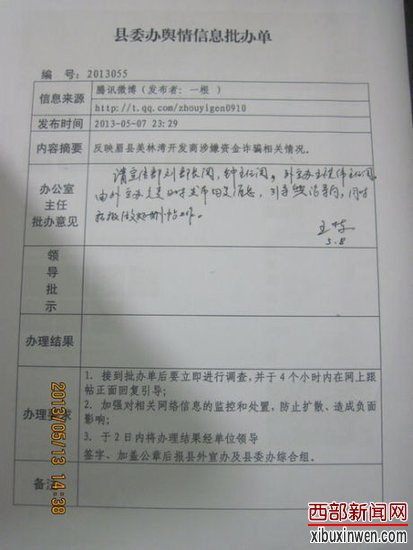 县委办舆情信息批办单
编 号：2013055
信息来源
腾讯微博（发布者：一根 ）
http://t.qq.com/zhouyigen0910
发布时间
2013-05-07 23:29
内容摘要
反映眉县美林湾开发商涉嫌资金诈骗相关情况。
办公室
主任
批办意见
请宣传部刘部长阅，钟主任阅。外宣办主任伟主任阅
积极做好删帖工作。
5.8
领
导
批
示
办理结果
办理要求
1. 接到批办单后要立即进行调查，并于 4 个小时内在网上跟
帖正面回复引导；
2. 加强对相关网络信息的监控和处置，防止扩散、造成负面
影响；
3. 于 2 日内将办理结果经单位领导
签字、加盖公章后报县外宣办及县委办综合组。
备注
2013/05/13 14:38
西部新闻网
xibuxinwen.com